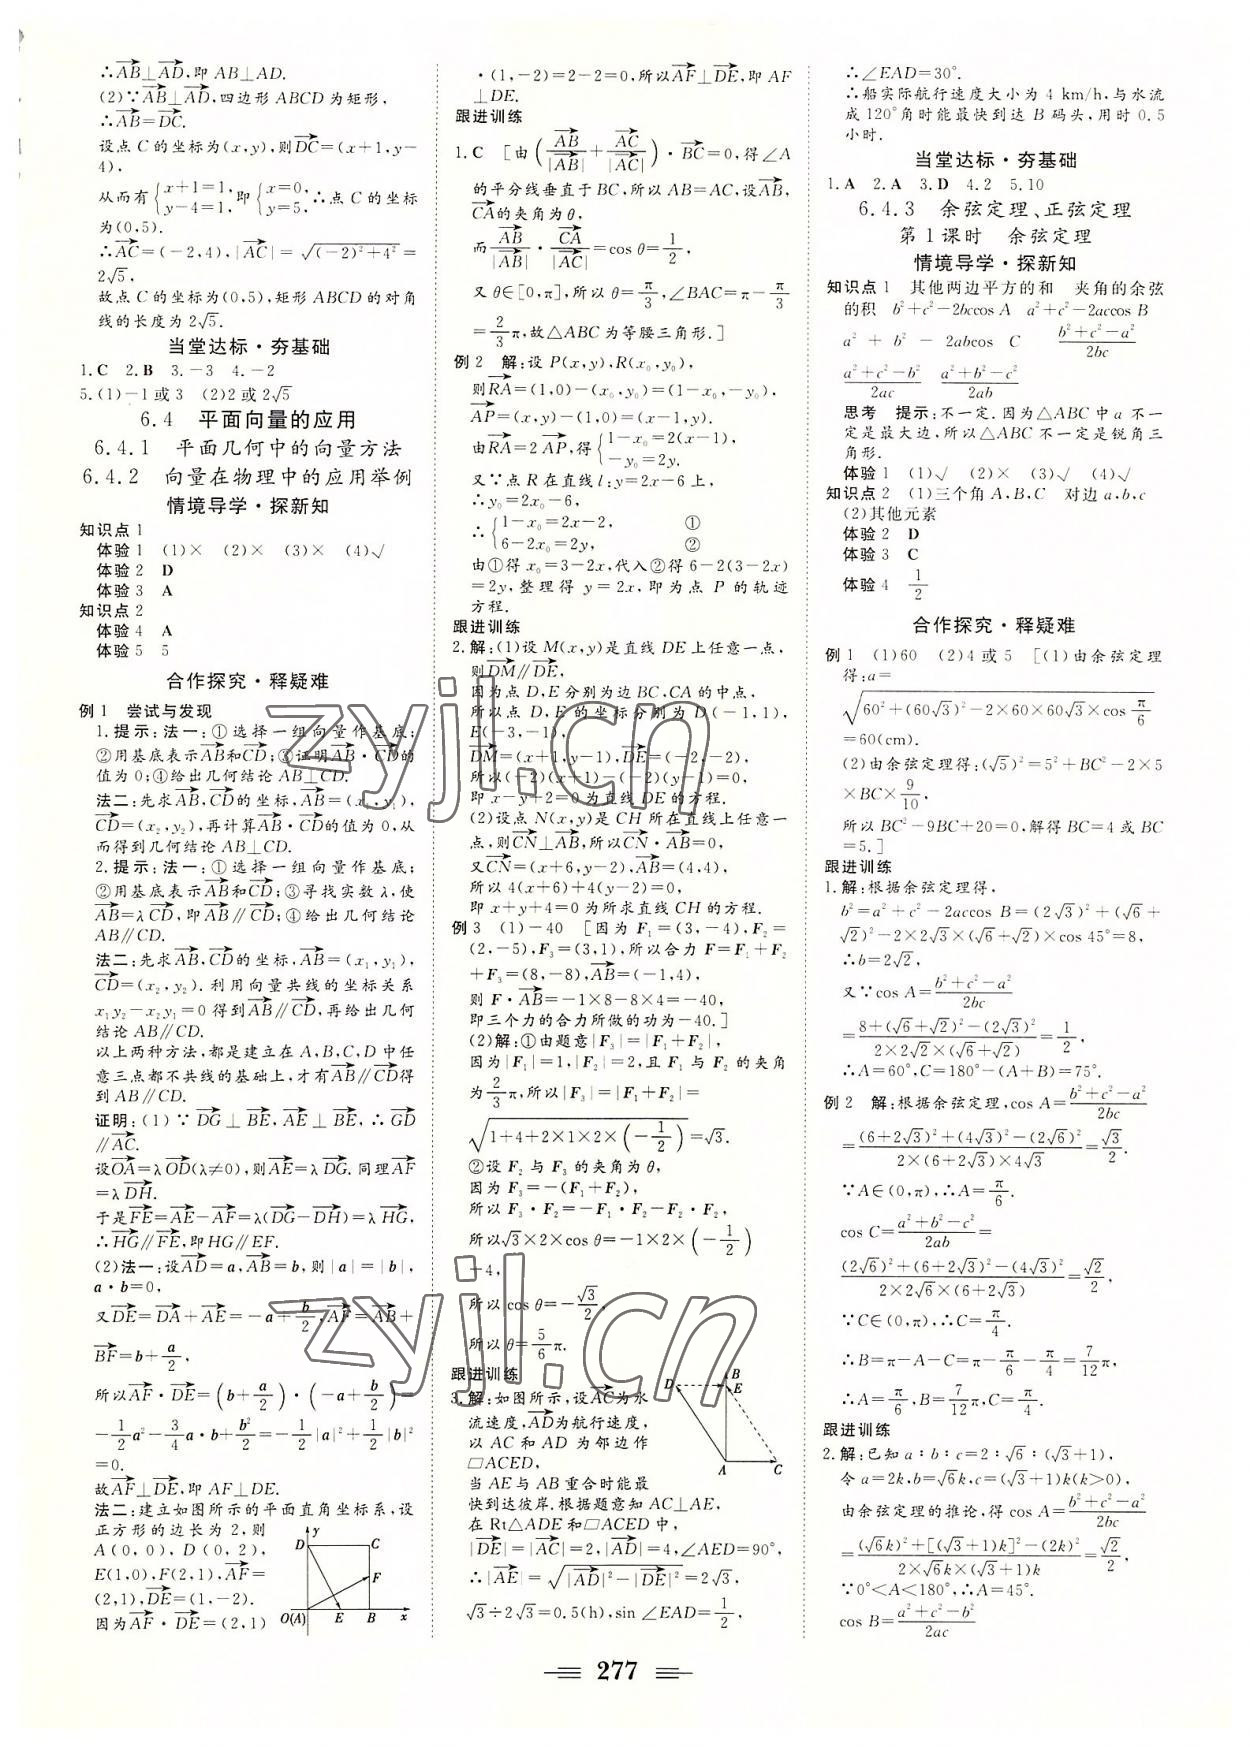 ∴AB⊥AD,即 AB⊥AD.
(2)∵AB⊥AD,四边形 ABCD 为矩形,
∴AB=DC.
设点 C 的坐标为(x,y),则DC=(x+1,y-
4),
从而有{x+1=1, y-4=1,即{x=0, y=5,∴点 C 的坐标
为(0,5).
∴AC=(-2,4),|AC|=√((-2)²+4²)=
2√5,
故点 C 的坐标为(0,5),矩形 ABCD 的对角
线的长度为 2√5.
当堂达标·夯基础
1.C 2.B 3.-3 4.-2
5.(1)-1 或 3 (2)2 或 2√5
6.4 平面向量的应用
6.4.1 平面几何中的向量方法
6.4.2 向量在物理中的应用举例
情境导学·探新知
知识点 1
体验 1 (1)× (2)× (3)× (4)√
体验 2 D
体验 3 A
知识点 2
体验 4 A
体验 5 5
合作探究·释疑难
例 1 尝试与发现
1.提示:法一:①选择一组向量作基底;
②用基底表示AB和CD;③证明AB·CD的
值为 0;④给出几何结论 AB⊥CD.
法二:先求AB,CD的坐标,AB=(x₁,y₁),
CD=(x₂,y₂),再计算AB·CD的值为 0,从
而得到几何结论 AB⊥CD.
2.提示:法一:①选择一组向量作基底;
②用基底表示AB和CD;③寻找实数 λ,使
AB=λCD,即AB∥CD;④给出几何结论
AB∥CD.
法二:先求AB,CD的坐标,AB=(x₁,y₁),
CD=(x₂,y₂).利用向量共线的坐标关系
x₁y₂-x₂y₁=0 得到AB∥CD,再给出几何
结论 AB∥CD.
以上两种方法,都是建立在 A,B,C,D 中任
意三点都不共线的基础上,才有AB∥CD得
到 AB∥CD.
证明:(1)∵DG⊥BE,AE⊥BE,∴GD
∥AC.
设OA=λOD(λ≠0),则AE=λDG.同理AF
=λDH.
于是FE=AE-AF=λ(DG-DH)=λHG,
∴HG∥FE,即 HG∥EF.
(2)法一:设AD=a,AB=b,则|a|=|b|,
a·b=0,
又DE=DA+AE=-a+b/2,AF=AB+
BF=b+a/2,
所以AF·DE=(b+a/2)·(-a+b/2)=
-1/2a²-3/4a·b+b²/2=-1/2|a|²+1/2|b|²
=0.
故AF⊥DE,即 AF⊥DE.
法二:建立如图所示的平面直角坐标系,设
正方形的边长为 2,则
A(0,0),D(0,2),
E(1,0),F(2,1),AF=
(2,1),DE=(1,-2).
因为AF·DE=(2,1)
y
D C
F
O(A) E B x
·(1,-2)=2-2=0,所以AF⊥DE,即 AF
⊥DE.
跟进训练
1.C [由(AB/|AB|+AC/|AC|)·BC=0,得∠A
的平分线垂直于 BC,所以 AB=AC,设AB,
CA的夹角为 θ,
而AB/|AB|·CA/|AC|=cos θ=1/2,
又 θ∈[0,π],所以 θ=π/3,∠BAC=π-π/3
=2/3π,故△ABC 为等腰三角形.]
例 2 解:设 P(x,y),R(x₀,y₀),
则RA=(1,0)-(x₀,y₀)=(1-x₀,-y₀),
AP=(x,y)-(1,0)=(x-1,y).
由RA=2AP,得{1-x₀=2(x-1), -y₀=2y.
又∵点 R 在直线 l:y=2x-6 上,
∴y₀=2x₀-6,
∴{1-x₀=2x-2, ① 6-2x₀=2y, ②
由①得 x₀=3-2x,代入②得 6-2(3-2x)
=2y,整理得 y=2x,即为点 P 的轨迹
方程.
跟进训练
2.解:(1)设 M(x,y)是直线 DE 上任意一点,
则DM∥DE,
因为点 D,E 分别为边 BC,CA 的中点,
所以点 D,E 的坐标分别为 D(-1,1),
E(-3,-1),
DM=(x+1,y-1),DE=(-2,-2),
所以(-2)(x+1)-(-2)(y-1)=0,
即 x-y+2=0 为直线 DE 的方程.
(2)设点 N(x,y)是 CH 所在直线上任意一
点,则CN⊥AB,所以CN·AB=0,
又CN=(x+6,y-2),AB=(4,4),
所以 4(x+6)+4(y-2)=0,
即 x+y+4=0 为所求直线 CH 的方程.
例 3 (1)-40 [因为 F₁=(3,-4),F₂=
(2,-5),F₃=(3,1),所以合力 F=F₁+F₂
+F₃=(8,-8),AB=(-1,4),
则 F·AB=-1×8-8×4=-40,
即三个力的合力所做的功为-40.]
(2)解:①由题意|F₃|=|F₁+F₂|,
因为|F₁|=1,|F₂|=2,且 F₁ 与 F₂ 的夹角
为2/3π,所以|F₃|=|F₁+F₂|=
√(1+4+2×1×2×(-1/2))=√3.
②设 F₂ 与 F₃ 的夹角为 θ,
因为 F₃=-(F₁+F₂),
所以 F₃·F₂=-F₁·F₂-F₂·F₂,
所以√3×2×cos θ=-1×2×(-1/2)
-4,
所以 cos θ=-√3/2,
所以 θ=5/6π.
跟进训练
3.解:如图所示,设AC为水
流速度,AD为航行速度,
以 AC 和 AD 为邻边作
□ACED,
当 AE 与 AB 重合时能最
快到达彼岸.根据题意知 AC⊥AE,
在 Rt△ADE 和□ACED 中,
|DE|=|AC|=2,|AD|=4,∠AED=90°,
∴|AE|=√(|AD|²-|DE|²)=2√3,
√3÷2√3=0.5(h),sin ∠EAD=1/2,
B
D E
A C
∴∠EAD=30°.
∴船实际航行速度大小为 4 km/h,与水流
成 120°角时能最快到达 B 码头,用时 0.5
小时.
当堂达标·夯基础
1.A 2.A 3.D 4.2 5.10
6.4.3 余弦定理、正弦定理
第 1 课时 余弦定理
情境导学·探新知
知识点 1 其他两边平方的和 夹角的余弦
的积 b²+c²-2bccos A a²+c²-2accos B
a²+b²-2abcos C (b²+c²-a²)/2bc
(a²+c²-b²)/2ac (a²+b²-c²)/2ab
思考 提示:不一定.因为△ABC 中 a 不一
定是最大边,所以△ABC 不一定是锐角三
角形.
体验 1 (1)√ (2)× (3)√ (4)√
知识点 2 (1)三个角 A,B,C 对边 a,b,c
(2)其他元素
体验 2 D
体验 3 C
体验 4 1/2
合作探究·释疑难
例 1 (1)60 (2)4 或 5 [(1)由余弦定理
得:a=
√(60²+(60√3)²-2×60×60√3×cos π/6)
=60(cm).
(2)由余弦定理得:(√5)²=5²+BC²-2×5
×BC×9/10,
所以 BC²-9BC+20=0,解得 BC=4 或 BC
=5.]
跟进训练
1.解:根据余弦定理得,
b²=a²+c²-2accos B=(2√3)²+(√6+
√2)²-2×2√3×(√6+√2)×cos 45°=8,
∴b=2√2,
又∵cos A=(b²+c²-a²)/2bc
=(8+(√6+√2)²-(2√3)²)/(2×2√2×(√6+√2))=1/2,
∴A=60°,C=180°-(A+B)=75°.
例 2 解:根据余弦定理,cos A=(b²+c²-a²)/2bc
=((6+2√3)²+(4√3)²-(2√6)²)/(2×(6+2√3)×4√3)=√3/2.
∵A∈(0,π),∴A=π/6.
cos C=(a²+b²-c²)/2ab=
((2√6)²+(6+2√3)²-(4√3)²)/(2×2√6×(6+2√3))=√2/2,
∵C∈(0,π),∴C=π/4.
∴B=π-A-C=π-π/6-π/4=7/12π,
∴A=π/6,B=7/12π,C=π/4.
跟进训练
2.解:已知 a∶b∶c=2∶√6∶(√3+1),
令 a=2k,b=√6k,c=(√3+1)k(k>0),
由余弦定理的推论,得 cos A=(b²+c²-a²)/2bc
=((√6k)²+[(√3+1)k]²-(2k)²)/(2×√6k×(√3+1)k)=√2/2,
∵0°<A<180°,∴A=45°.
cos B=(a²+c²-b²)/2ac
277
zyjl.cn
zyjl.cn